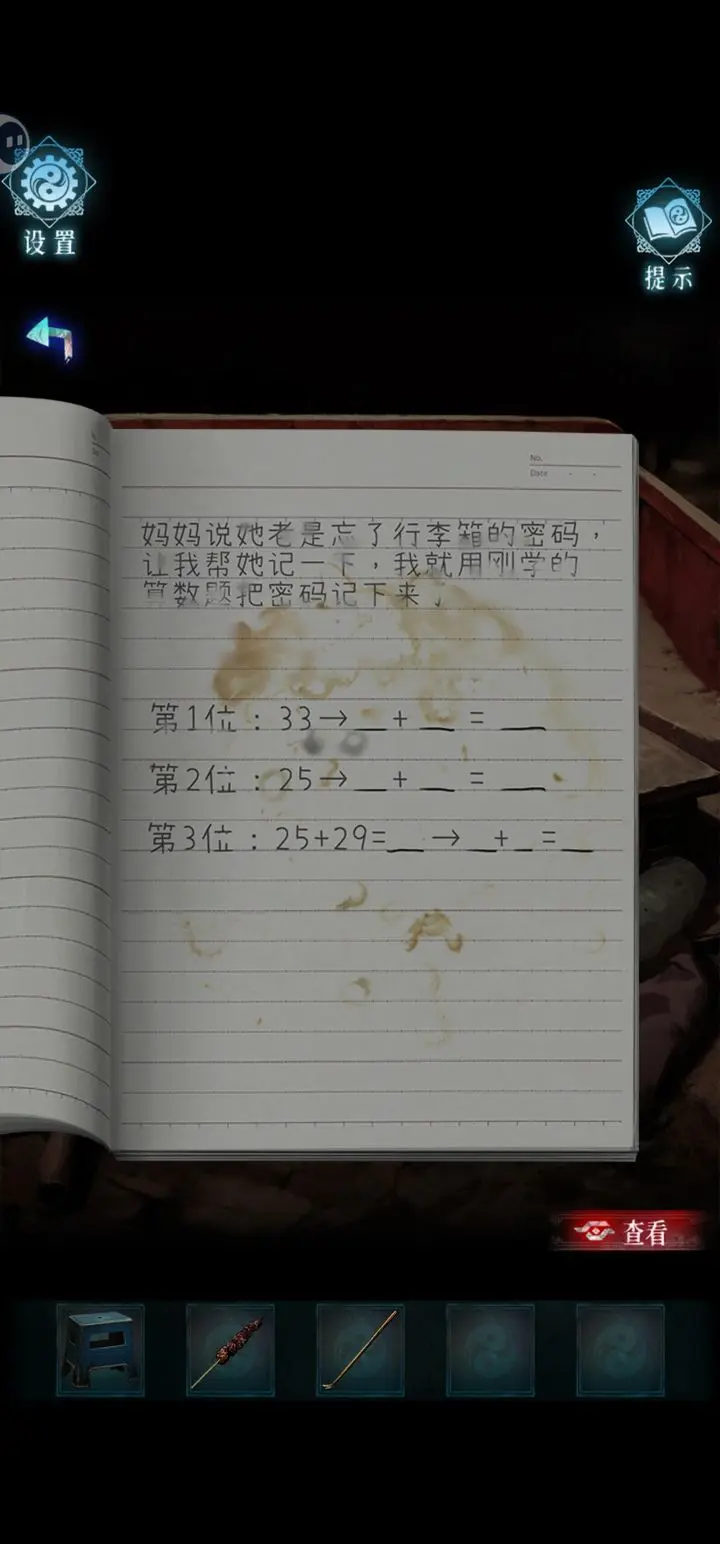 设置
提示
No.
Date
妈妈说她老是忘了行李箱的密码，
让我帮她记一下，我就用刚学的
算数题把密码记下来了
第1位：33→__+__=__
第2位：25→__+__=__
第3位：25+29=__→__+__=__
查看